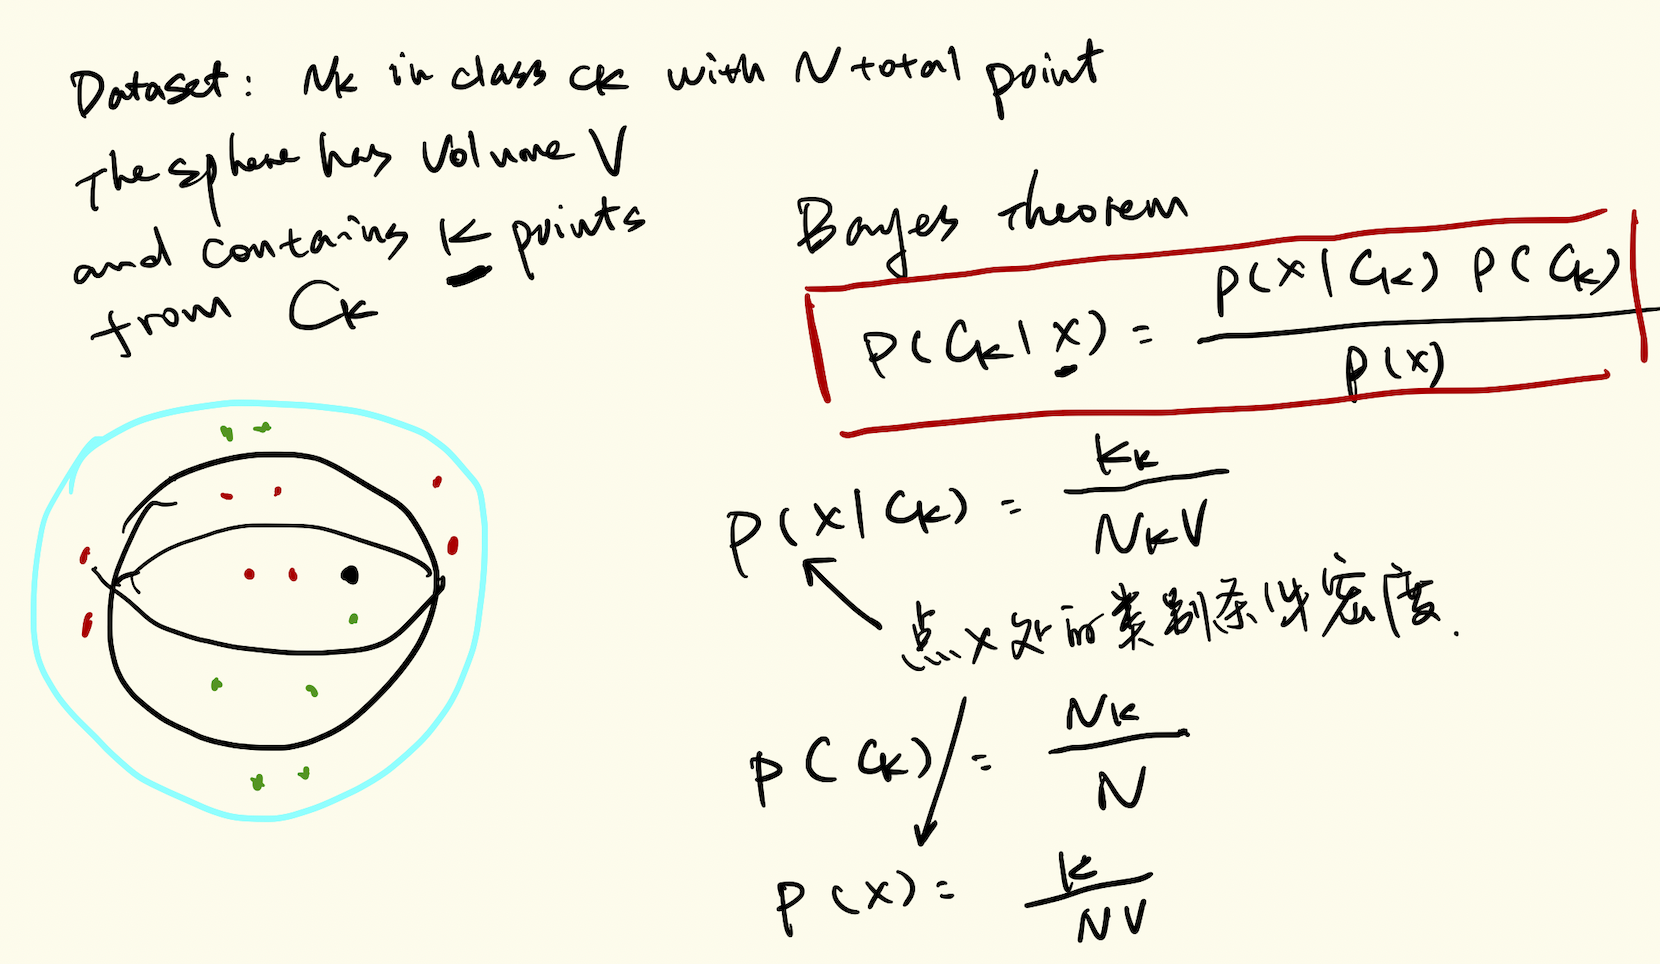 Dataset: Nk in class CK with N total point
The sphere has Volume V
and contains K points
from CK
Bayes theorem
P(CK|x) = P(x|CK) P(CK) / P(x)
P(x|CK) = KK / NKV
点x处的类别条件密度.
P(CK) = NK / N
P(x) = K / NV